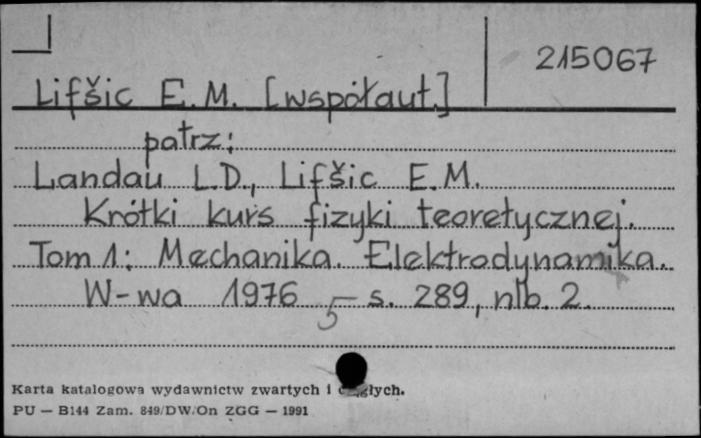 215067
Lifšic E.M. [współaut.]
patrz:
Landau L.D., Lifšic E.M.
Krótki kurs fizyki teoretycznej.
Tom 1: Mechanika. Elektrodynamika.
W-wa 1976 s. 289, nlb. 2.
5
Karta katalogowa wydawnictw zwartych i
PU — B144 Zam. 849/DW/On ZGG — 1991